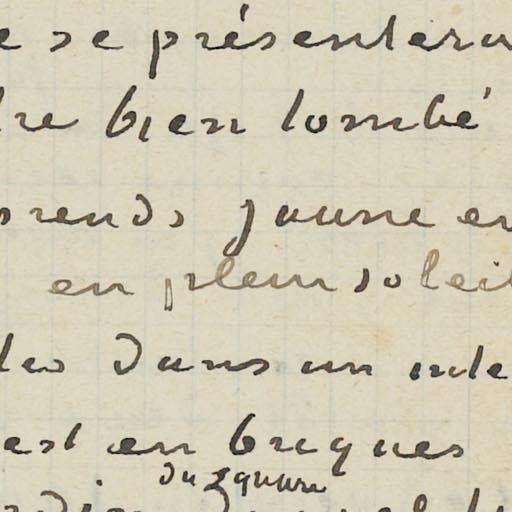 e se présentera
tre bien tombé
prends jaune en
en plein soleil
les dans un inte
est en briques
du square